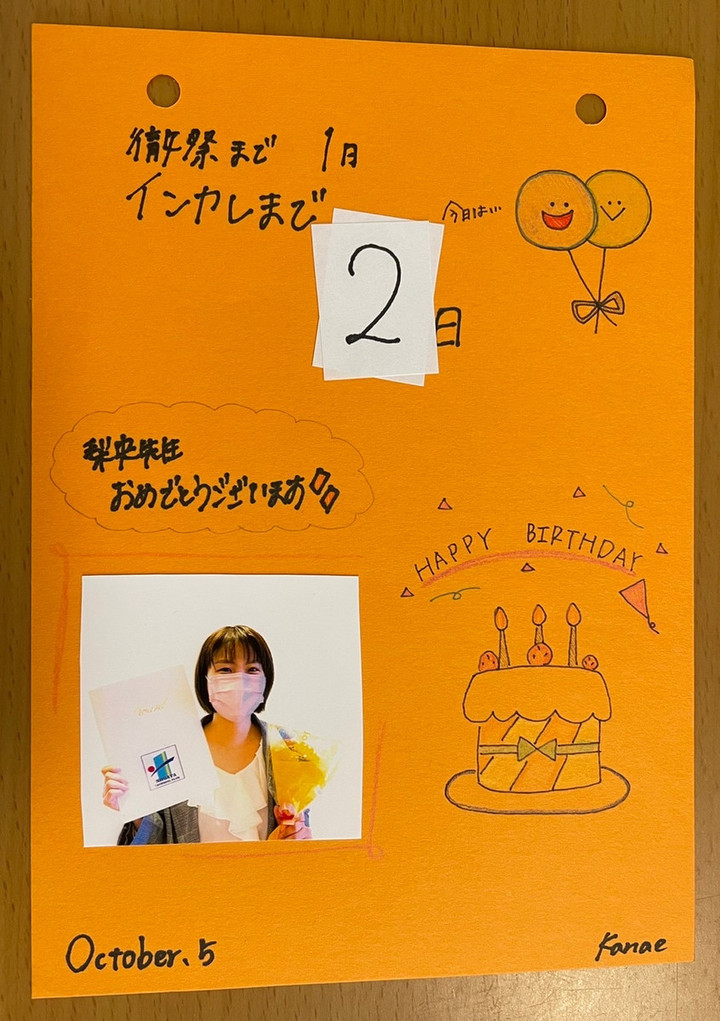 祭まで 1日
インカレまで
2日
今日は…
梨央先生
おめでとうございます
HAPPY BIRTHDAY
October. 5
Kanae